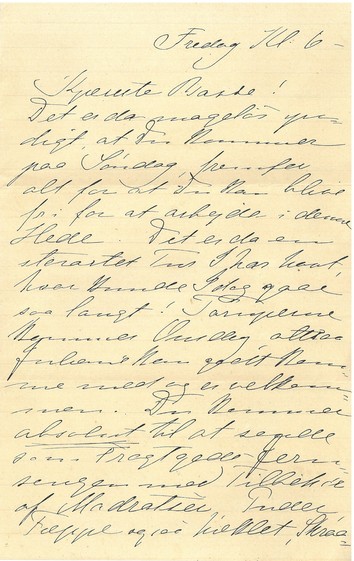 Fredag Kl. 6 –
Kjæreste Basse!
Det er da mageløs yn-
digt, at Du kommer
paa Søndag, fremfor
alt for at Du kan blive
fri for at arbejde i denne
Hede. Det er da en
storartet Tur I har havt,
hvor kunde I dog gaae
saa langt!
kommer Onsdag, altsaa
kan godt kom-
me med og er velkom-
men. Du kommer
absolut til at sende
som Fragtgods Jern-
sengen med Tilbehør
af Madratser, Puder
Tæppe og